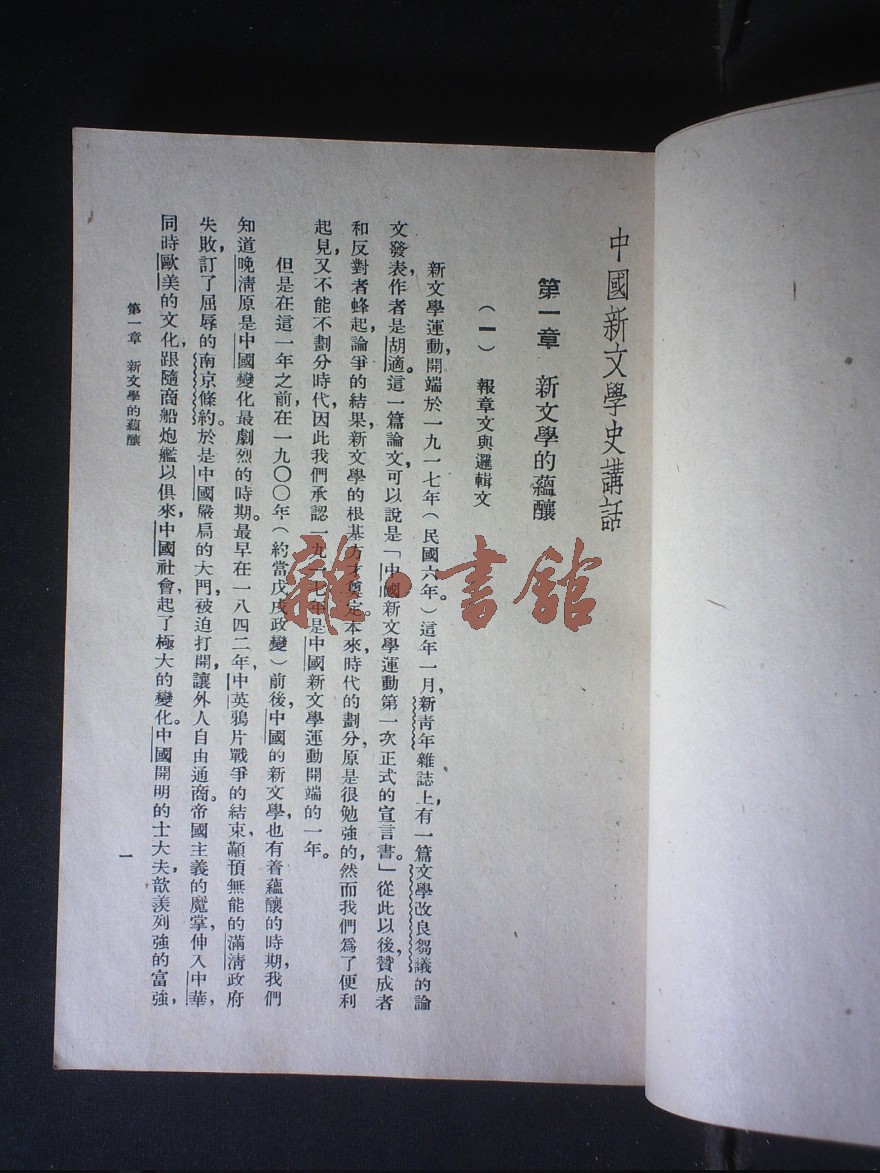 中國新文學史講話
第一章　新文學的蘊釀
（一）　報章文與邏輯文
新文學運動，開端於一九一七年（民國六年。）這年一月，新靑年雜誌上，有一篇文學改良芻議的論
文發表，作者是胡適。這一篇論文，可以說是「中國新文學運動第一次正式的宣言書。」從此以後，贊成者
和反對者蜂起，論爭的結果，新文學的根基方才奠定。本來，時代的劃分，原是很勉強的，然而我們爲了便利
起見，又不能不劃分時代，因此我們承認一九一七年是中國新文學運動開端的一年。
但是在這一年之前，在一九〇〇年（約當戊戌政變）前後，中國的新文學，也有着蘊釀的時期，我們
知道晚淸原是中國變化最劇烈的時期。最早在一八四二年，中英鴉片戰爭的結束，顢頇無能的滿淸政府
失敗，訂了屈辱的南京條約。於是中國嚴局的大門，被迫打開，讓外人自由通商。帝國主義的魔掌，伸入中華，
同時歐美的文化，跟隨商船炮艦以俱來，中國社會，起了極大的變化。中國開明的士大夫，歆羨列強的富強，
第一章　新文學的蘊釀
一
雜·書館